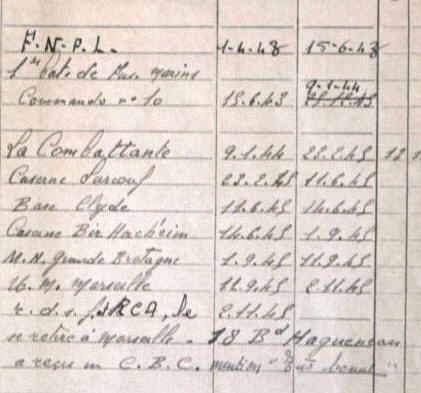 F.N.P.L. 1-4-43 15-6-43
1er Bat. de Fus. marins
9-1-44
Commando n° 10 15.6.43
La Combattante 9.1.44 23.2.45 12
Caserne Surcouf 23.2.45 11.6.45
Base Clyde 11.6.45 14.6.45
Caserne Bir Hacheim 14.6.45 1.9.45
M.N. Grande Bretagne 1.9.45 11.9.45
U.M. Marseille 12.9.45 2.11.45
r.d.s. p. le 2.11.45
se retire à Marseille. 18 Bd Hagueneau
a reçu un C.B.C. mention "Très bonne"